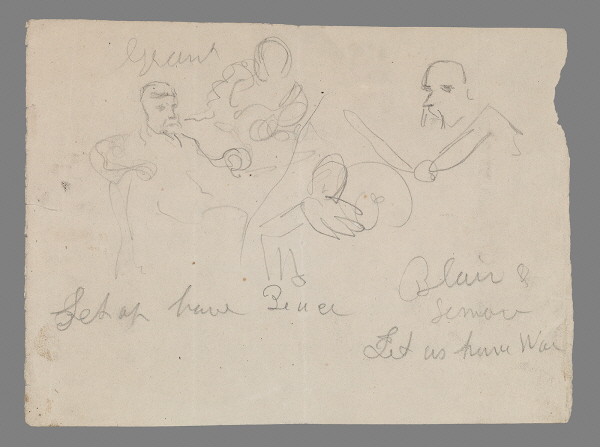 Grant
Let us have Peace
Blair &
Semour
Let us have War